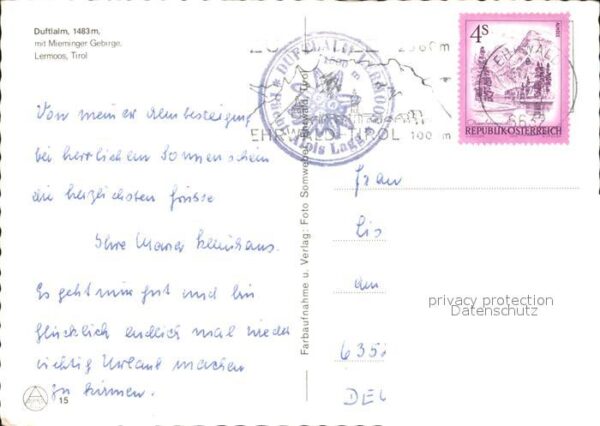 Duftlalm, 1483 m,
mit Mieminger Gebirge.
Lermoos, Tirol
Von meiner Almbesteigung
bei herrlichem Sonnenschein
die herzlichsten Grüsse
Ihre Maria
Es geht mir gut und bin
glücklich endlich mal wieder
richtig Urlaub machen
zu können.
15
Farbaufnahme u. Verlag: Foto Somweber, Ehrwald, Tirol
DUFTLALM LERMOOS
1500 m
Alois Lagg
2960 m
EHRWALD TIROL 1000 m
EHRWALD
6632
4S
REPUBLIK ÖSTERREICH
Frau
Lis
privacy protection
Datenschutz
635
DE